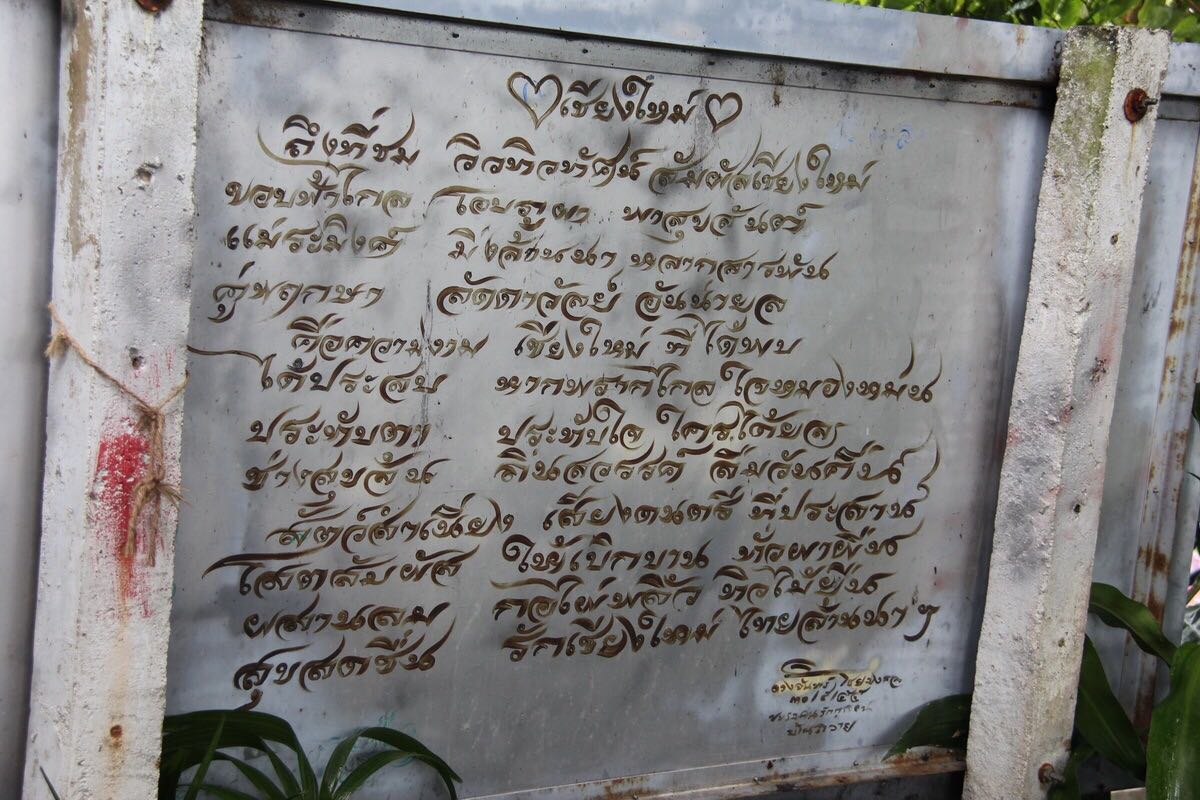 ♡เชียงใหม่♡
ถึงที่ชม วิวทิวทัศน์ สัมผัสเชียงใหม่
ขอบฟ้าไกล โอบภูผา พาสุขสันต์
แม่ระมิงค์ มิ่งล้านนา หลากสารพัน
คู่พฤกษา ลัดดาวัลย์ อันน่ายล
คือความงาม เชียงใหม่ ที่ได้พบ
ได้ประสบ หากพรากไกล ใจหมองหม่น
ประทับตา ประทับใจ ใคร่ได้ยล
ช่างสุขล้น ถิ่นสวรรค์ ลืมวันคืน
สัตว์สำเนียง เสียงดนตรี ที่ประสาน
โสตสัมผัส ให้เบิกบาน ทั่วผาผืน
ผสานลม กอไผ่พลิ้ว ทิวไม้ยืน
สุขสดชื่น รักเชียงใหม่ ไทยล้านนา ๆ
บ้านถวาย